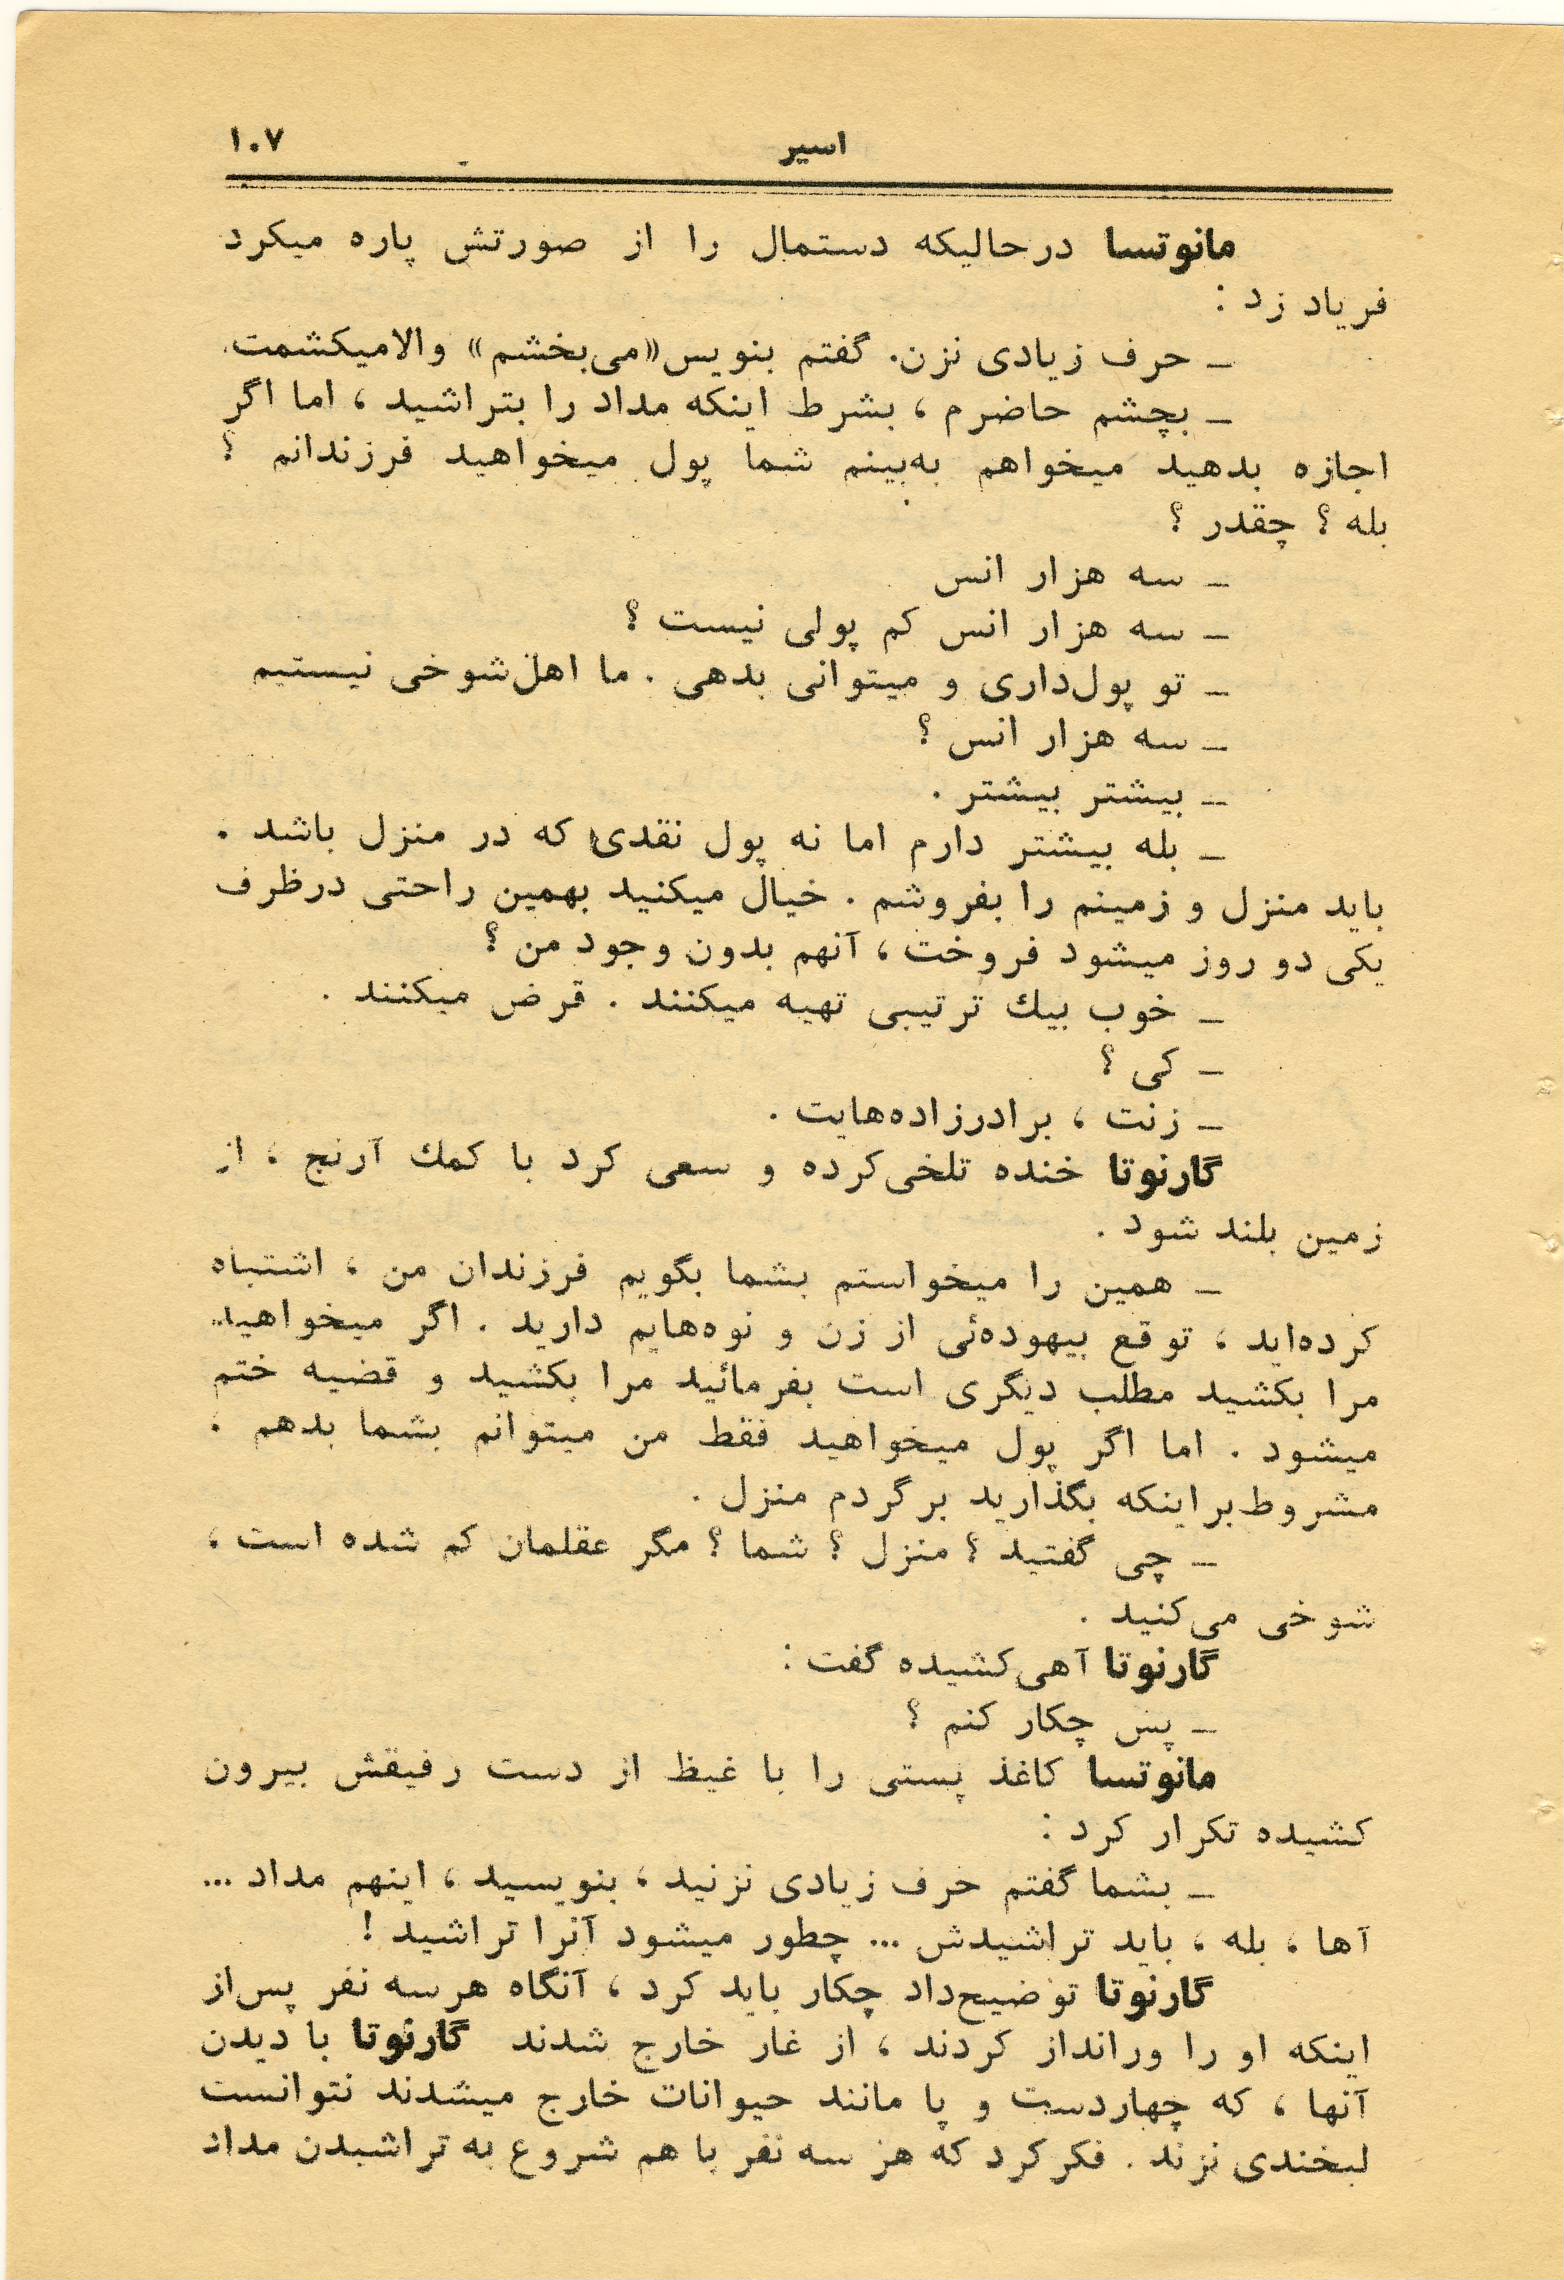 اسیر ۱۰۷
مانوتسا درحالیکه دستمال را از صورتش پاره میکرد
فریاد زد :
ـ حرف زیادی نزن. گفتم بنویس«می‌بخشم» والامیکشمت.
ـ بچشم حاضرم ، بشرط اینکه مداد را بتراشید ، اما اگر
اجازه بدهید میخواهم به‌بینم شما پول میخواهید فرزندانم ؟
بله ؟ چقدر ؟
ـ سه هزار انس
ـ سه هزار انس کم پولی نیست ؟
ـ تو پول‌داری و میتوانی بدهی . ما اهل‌شوخی نیستیم
ـ سه هزار انس ؟
ـ بیشتر بیشتر .
ـ بله بیشتر دارم اما نه پول نقدی که در منزل باشد .
باید منزل و زمینم را بفروشم . خیال میکنید بهمین راحتی درظرف
یکی دو روز میشود فروخت ، آنهم بدون وجود من ؟
ـ خوب بیك ترتیبی تهیه میکنند . قرض میکنند .
ـ کی ؟
ـ زنت ، برادرزاده‌هایت .
گارنوتا خنده تلخی‌کرده و سعی کرد با کمك آرنج ، از
زمین بلند شود .
ـ همین را میخواستم بشما بگویم فرزندان من ، اشتباه
کرده‌اید ، توقع بیهوده‌ئی از زن و نوه‌هایم دارید . اگر میخواهید
مرا بکشید مطلب دیگری است بفرمائید مرا بکشید و قضیه ختم
میشود . اما اگر پول میخواهید فقط من میتوانم بشما بدهم .
مشروط‌براینکه بگذارید برگردم منزل .
ـ چی گفتید ؟ منزل ؟ شما ؟ مگر عقلمان کم شده است ،
شوخی می‌کنید .
گارنوتا آهی‌کشیده گفت :
ـ پس چکار کنم ؟
مانوتسا کاغذ پستی را با غیظ از دست رفیقش بیرون
کشیده تکرار کرد :
ـ بشما گفتم حرف زیادی نزنید ، بنویسید ، اینهم مداد ...
آها ، بله ، باید تراشیدش ... چطور میشود آنرا تراشید !
گارنوتا توضیح‌داد چکار باید کرد ، آنگاه هرسه نفر پس‌از
اینکه او را ورانداز کردند ، از غار خارج شدند گارنوتا با دیدن
آنها ، که چهاردست و پا مانند حیوانات خارج میشدند نتوانست
لبخندی نزند . فکرکرد که هر سه نفر با هم شروع به تراشیدن مداد